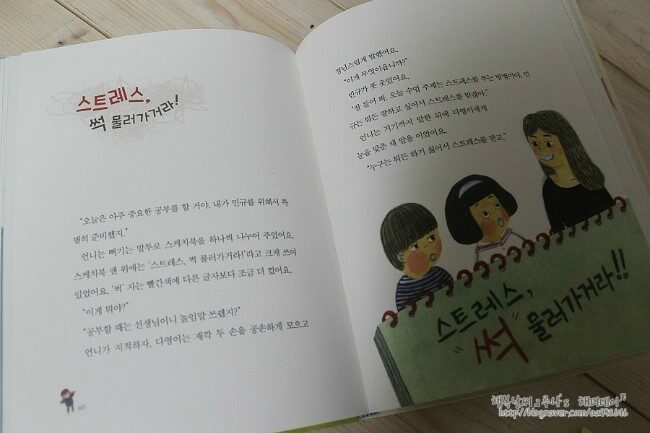 스트레스,
썩 물러가거라!
"오늘은 아주 중요한 공부를 할 거야. 내가 민규를 위해서 특
별히 준비했지."
언니는 뻐기는 말투로 스케치북을 하나씩 나누어 주었어요.
스케치북 맨 위에는 '스트레스, 썩 물러가거라!'라고 크게 쓰여
있었어요. '썩' 자는 빨간색에 다른 글자보다 조금 더 컸어요.
"이게 뭐야?"
"공부할 때는 선생님이니 높임말 쓰랬지?"
언니가 지적하자, 다영이는 재깍 두 손을 공손하게 모으고
장난스럽게 말했어요.
"이게 무엇이옵니까?"
민규가 풋 웃었어요.
"잘 들어 봐. 오늘 수업 주제는 스트레스를 푸는 방법이야. 민
규는 뭐든 잘하고 싶어서 스트레스를 받잖아."
언니는 거기까지 말한 뒤에 다영이에게
눈을 맞춘 채 말을 이었어요.
"누구는 뭐든 하기 싫어서 스트레스를 받고."
스트레스,
"썩" 물러가거라!!